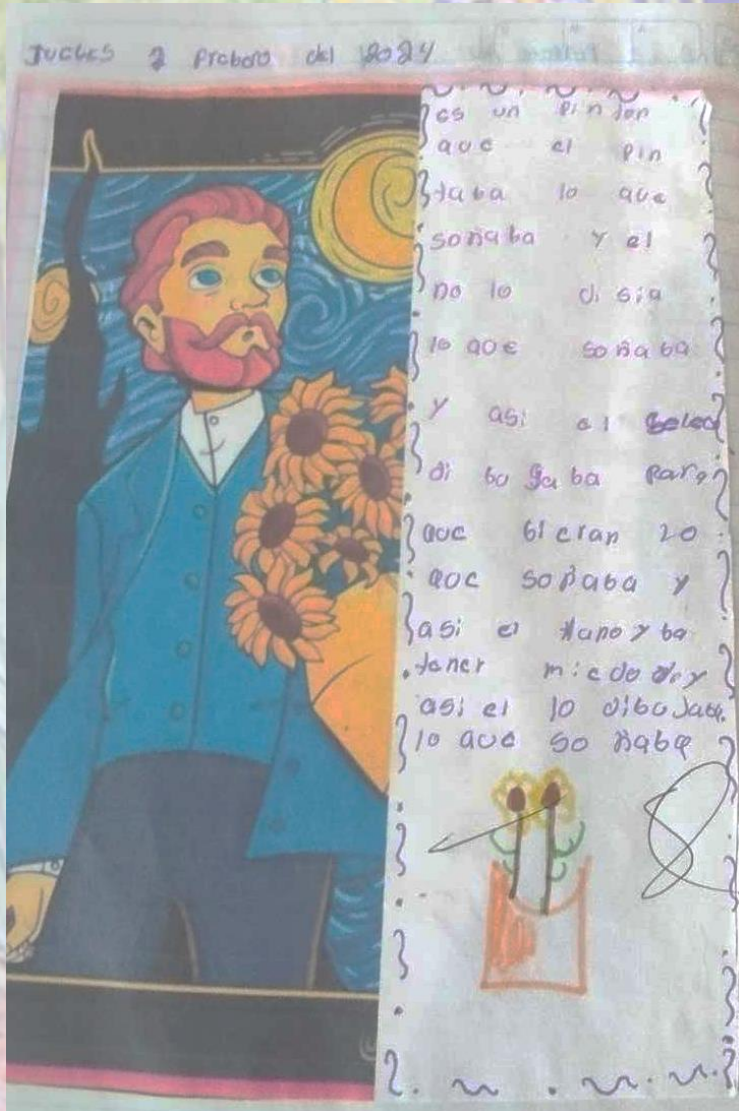 JUEVES 2 Frebero del 2024
es un pintor
que el pin
taba lo que
soñaba y el
no lo disia
lo que soñaba
y asi el
dibugaba para
que bieran lo
que soñaba y
asi el
taner miedo y
asi el lo dibujaba
lo que soñaba